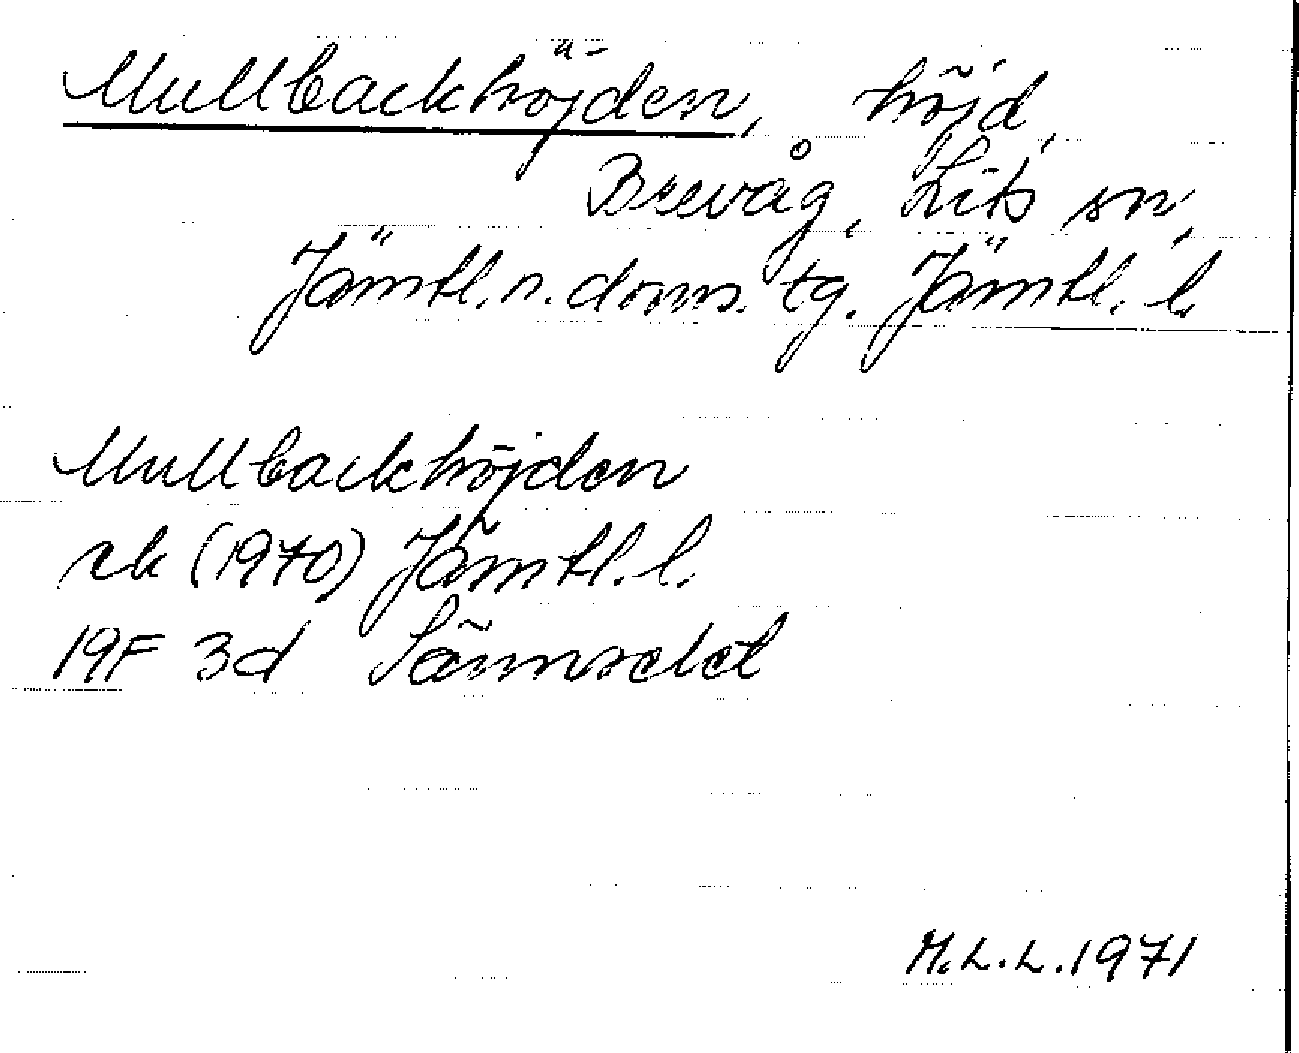 Mullbackhöjden, höjd,
Brevåg, Lits sn,
Jämtl. n. doms. tg. Jämtl. l.
Mullbackhöjden
rk (1970) Jämtl. l.
19F 3d
M.L.L. 1971